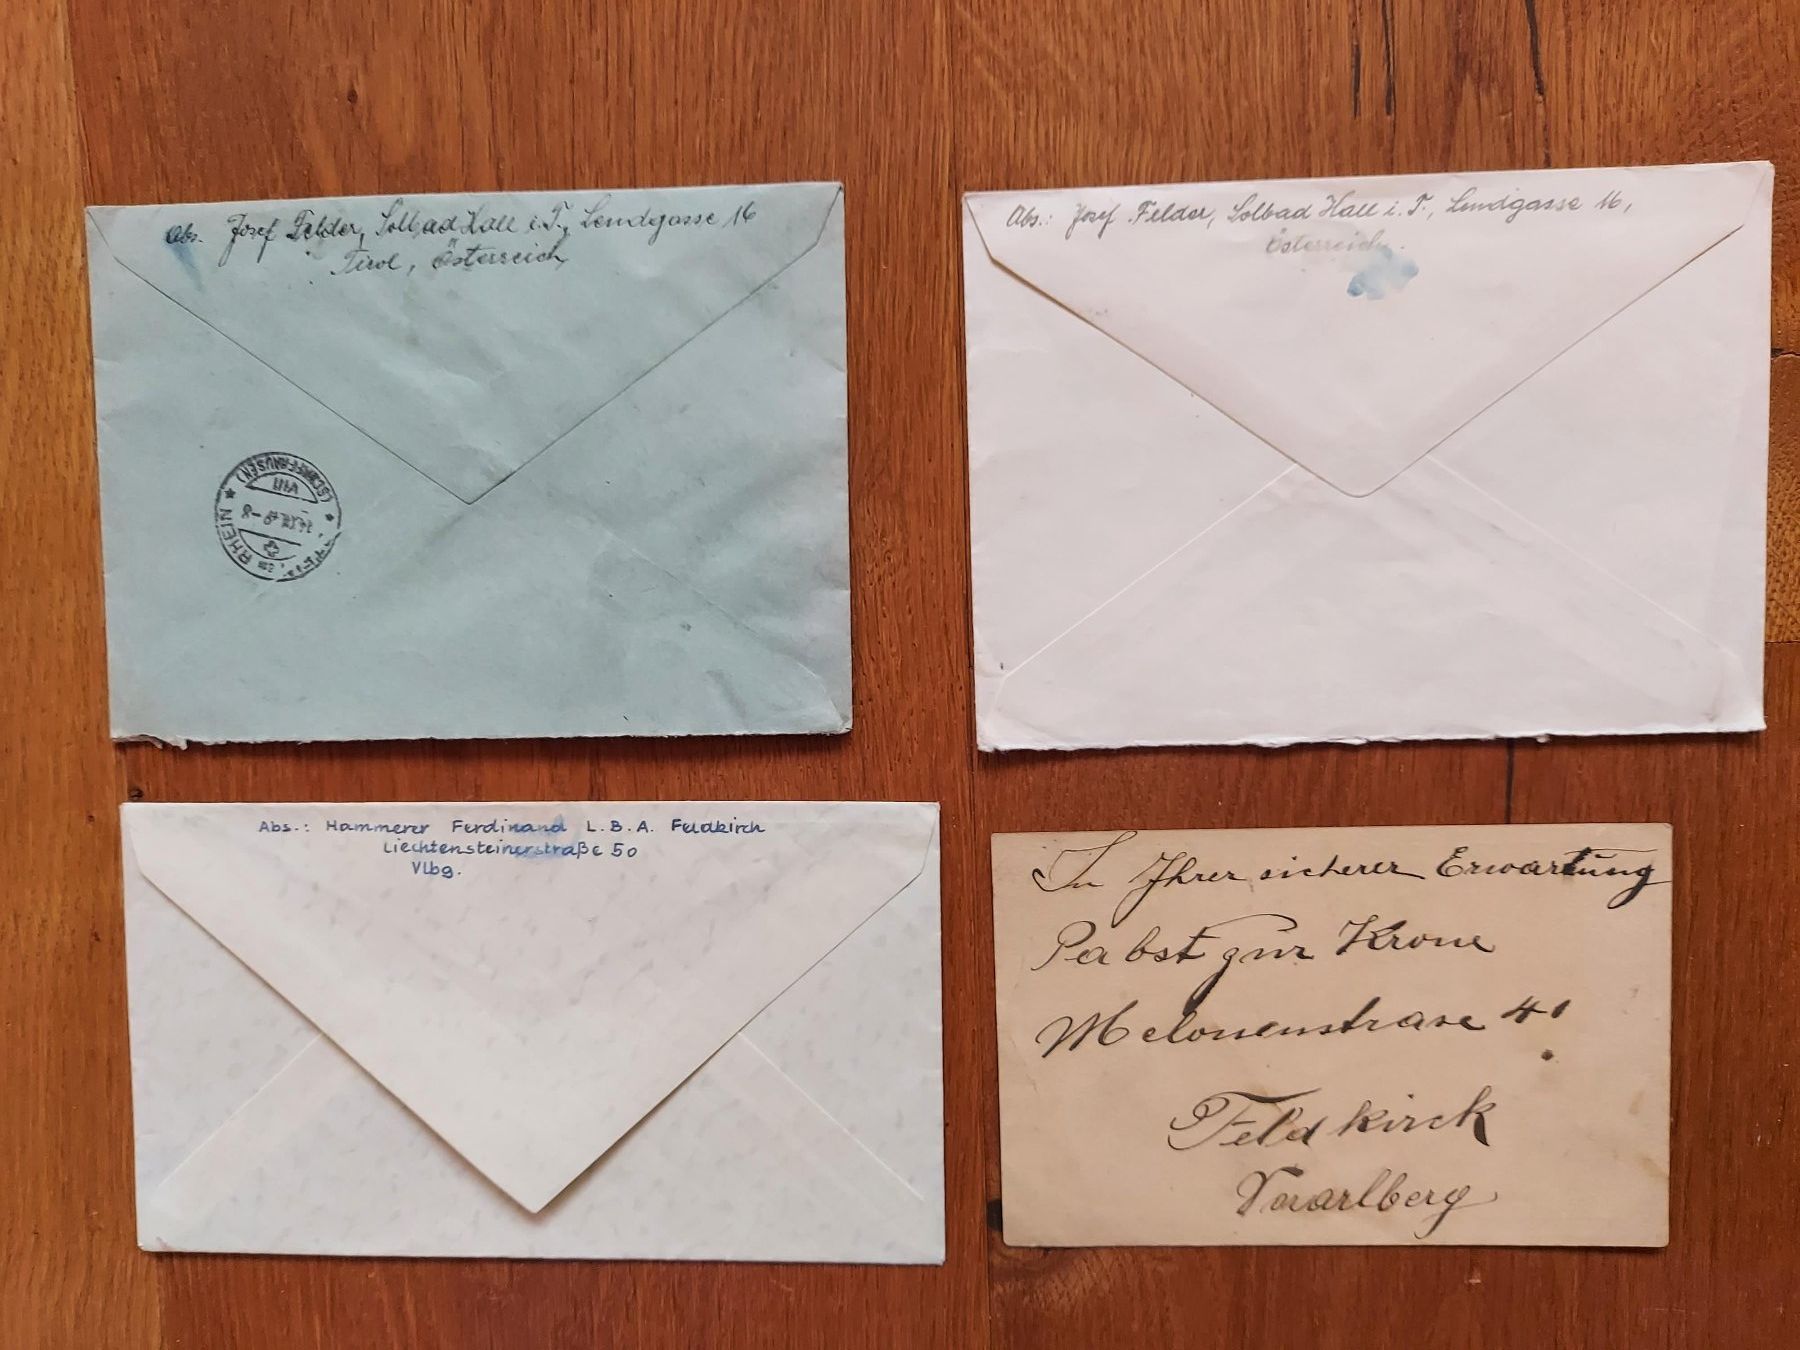 Abs. Josef Felder, Solbad Hall i. T., Lendgasse 16
Tirol, Österreich
(SCHAFFHAUSEN)
VIII
-8
am RHEIN
Abs.: Josef Felder, Solbad Hall i. T., Lendgasse 16,
Österreich.
Abs.: Hammerer Ferdinand L. B. A. Feldkirch
Liechtensteinerstraße 50
Vlbg.
In Ihrer sicherer Erwartung
Pabst zur Krone
Melonenstrase 41
Feldkirch
Vorarlberg